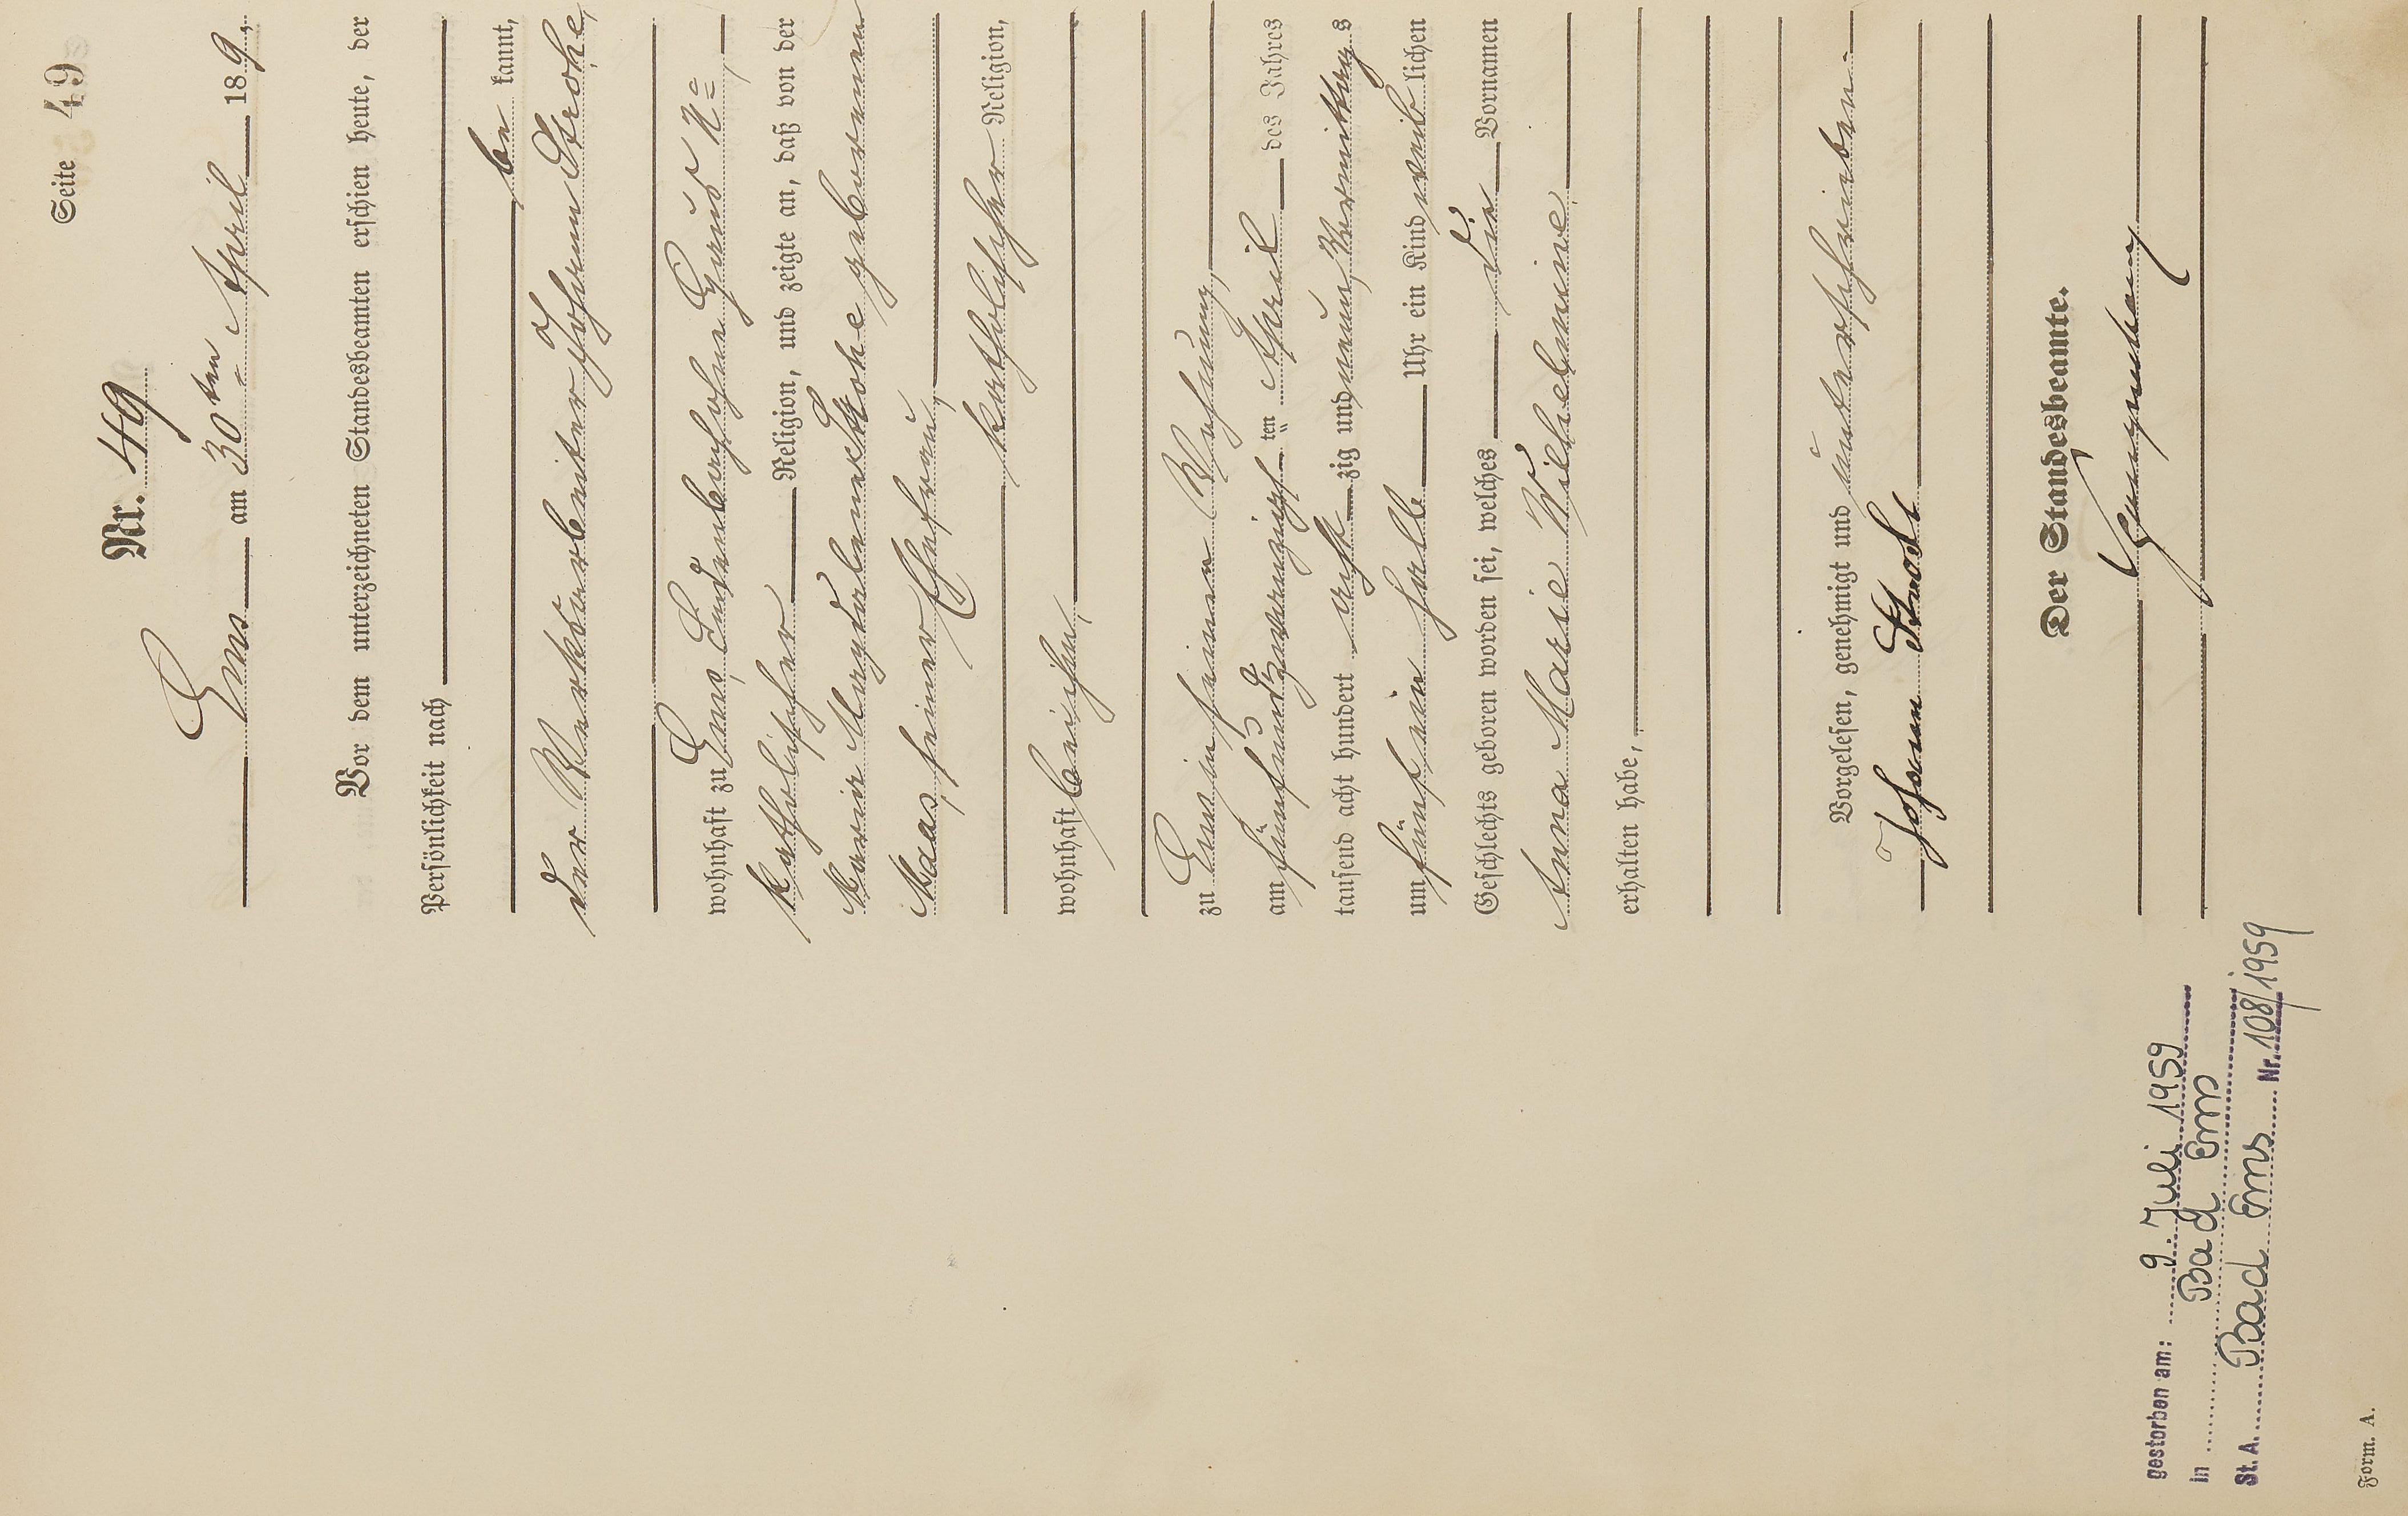 Seite 49
Nr. 49
Ems am 30ten April 189
Vor dem unterzeichneten Standesbeamten erschien heute, der
Persönlichkeit nach
be kannt,
der Werksarbeiter Johann Strohe,
wohnhaft zu Ems, Lindenbach ohne Haus N=
katholischer Religion, und zeigte an, daß von der
Maria Magdalena Strohe geborenen
Maas, seiner Ehefrau,
katholischer Religion,
wohnhaft bei ihm,
zu Ems in seiner Wohnung,
am fünfundzwanzigsten April des Jahres
tausend acht hundert zig und neun, Vormittags
um fünf ein halb Uhr ein Kind weiblichen
Geschlechts geboren worden sei, welches die Vornamen
Anna Marie Wilhelmine
erhalten habe,
Vorgelesen, genehmigt und unterschrieben.
Johann Strohe
Der Standesbeamte.
gestorben am: 9. Juli 1959
in Bad Ems
St. A. Bad Ems Nr. 108/1959
Form. A.